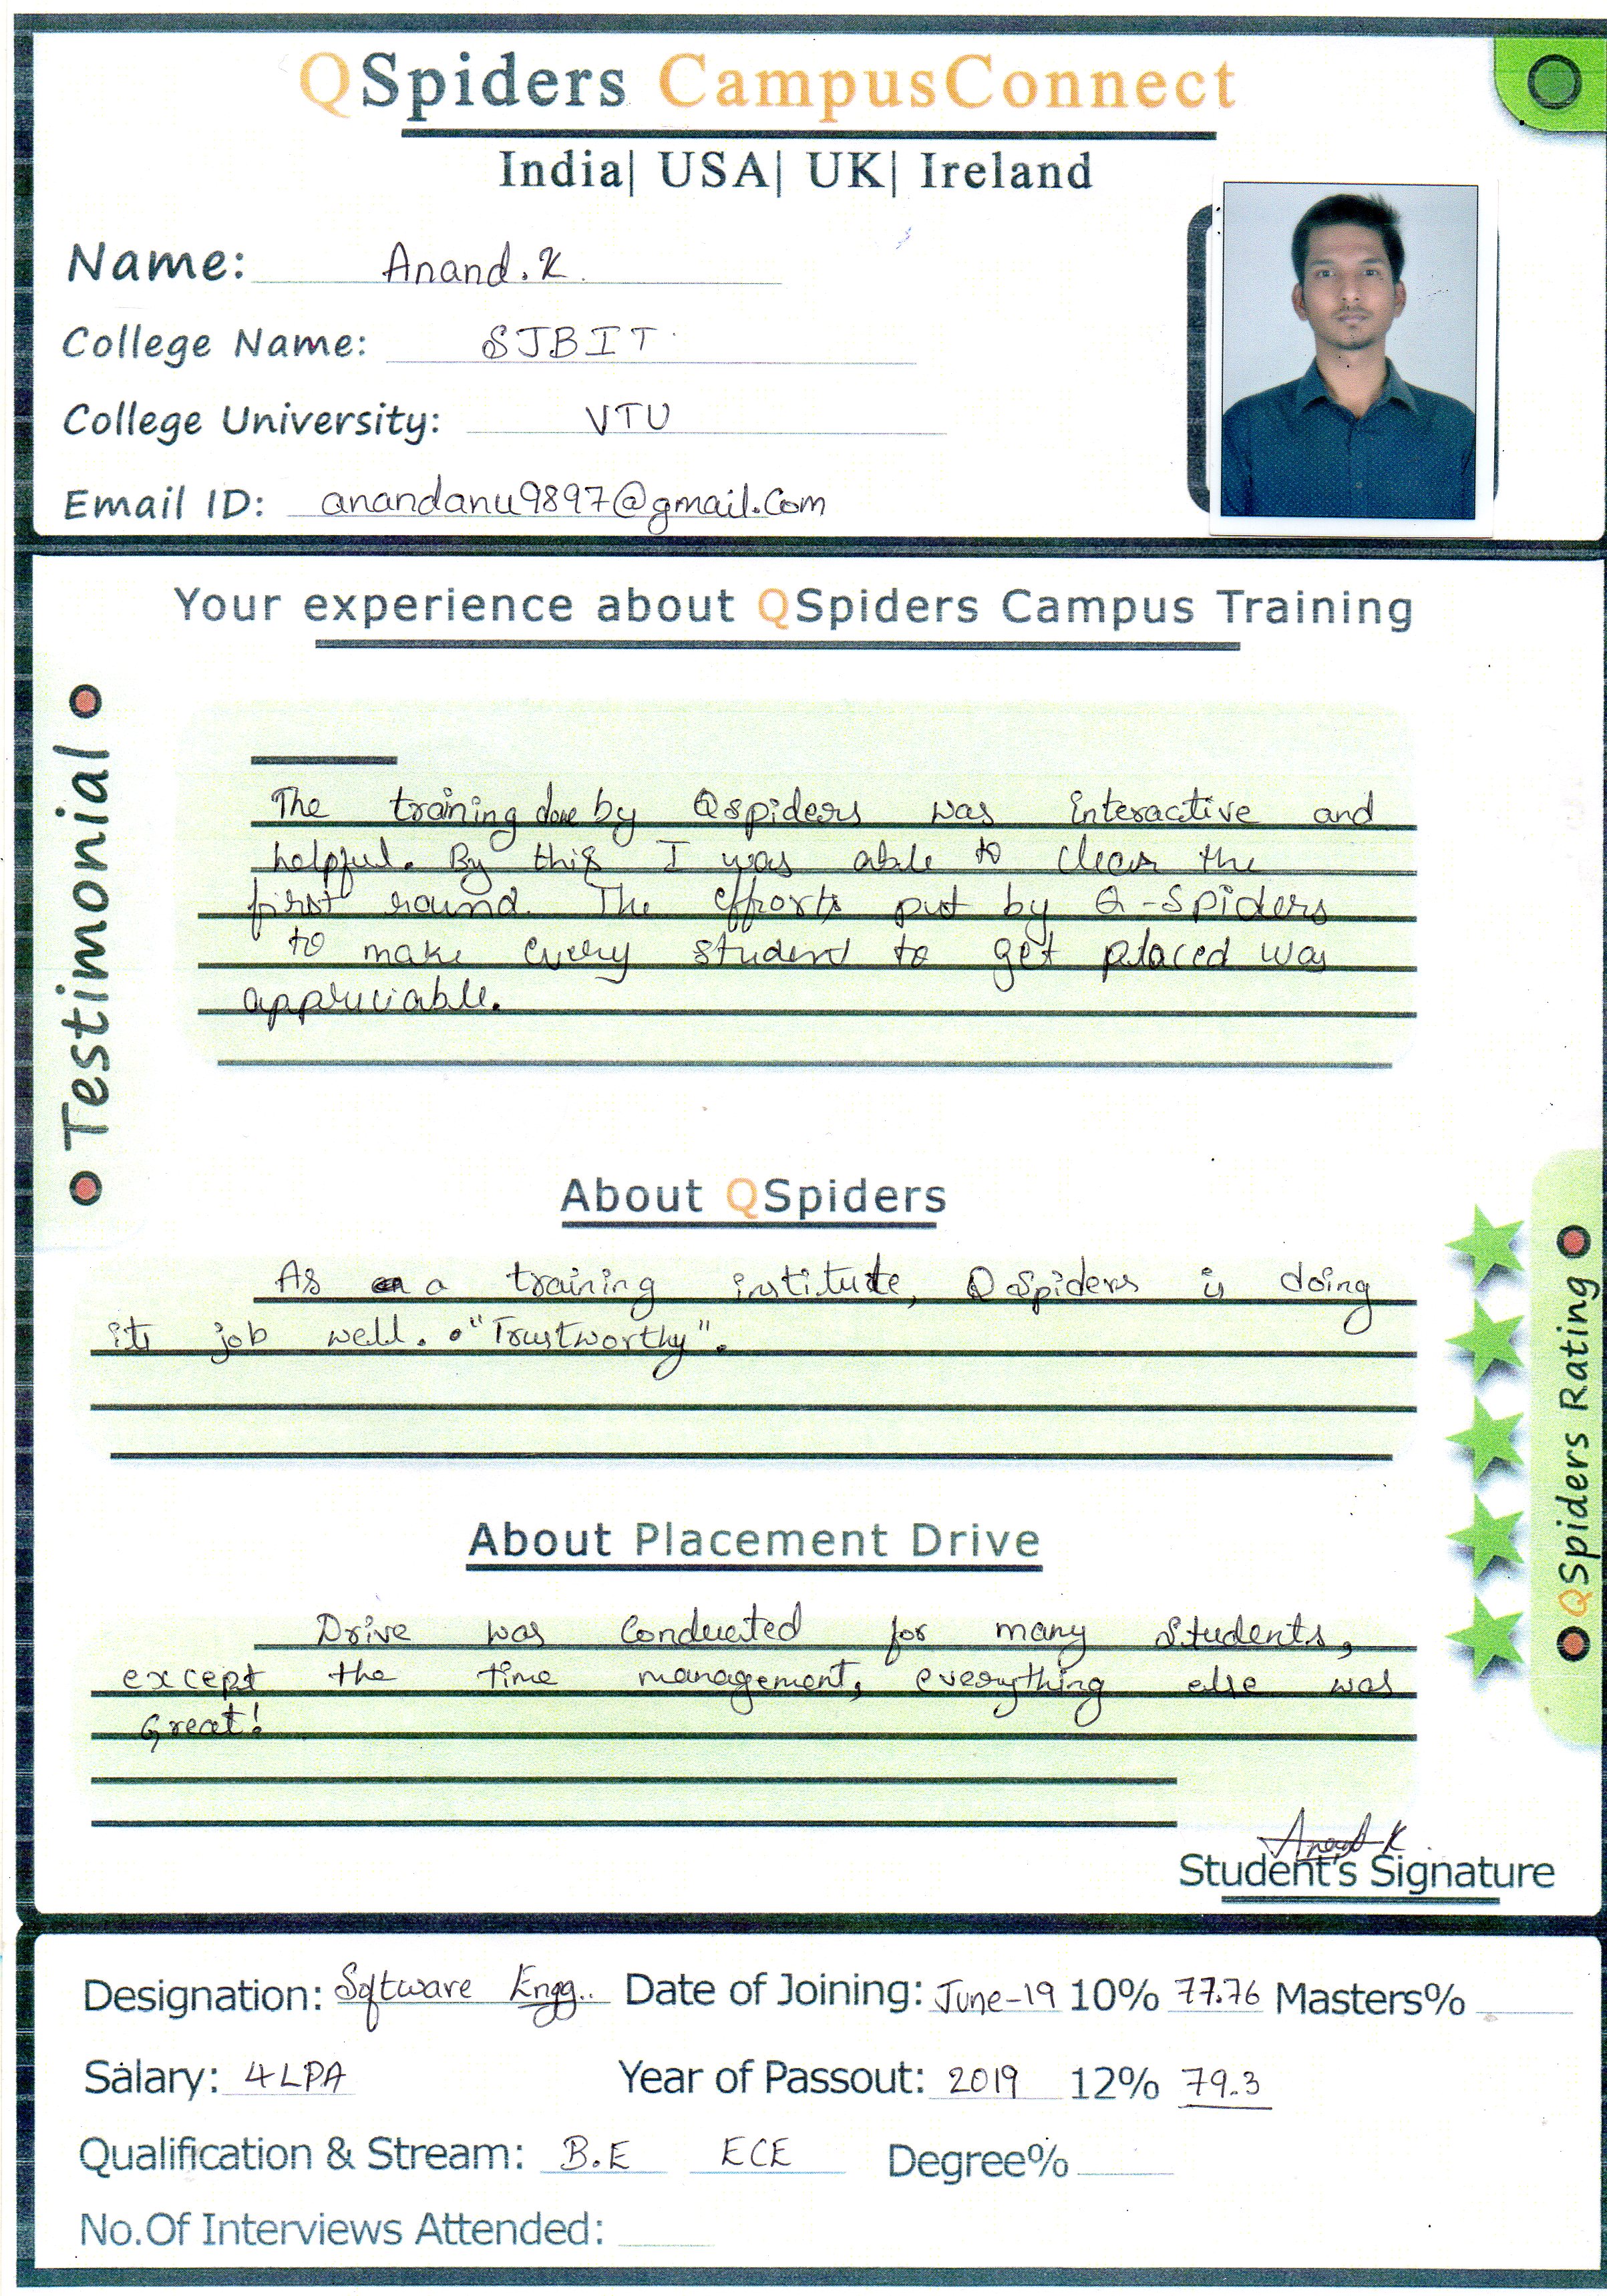 QSpiders CampusConnect
India| USA| UK| Ireland
Name: Anand.K.
College Name: SJBIT
College University: VTU
Email ID: anandanu9897@gmail.com
Your experience about QSpiders Campus Training
Testimonial
The training done by Qspiders was interactive and
helpful. By this I was able to clear the
first round. The efforts put by Q-Spiders
to make every student to get placed was
appriciable.
About QSpiders
As a training institute, QSpiders is doing
its job well. "Trustworthy".
QSpiders Rating
About Placement Drive
Drive was Conducted for many Students,
except the time management, everything else was
Great!
Anand K
Student's Signature
Designation: Software Engg.. Date of Joining: June-19 10% 77.76 Masters%
Salary: 4LPA Year of Passout: 2019 12% 79.3
Qualification & Stream: B.E ECE Degree%
No.Of Interviews Attended: